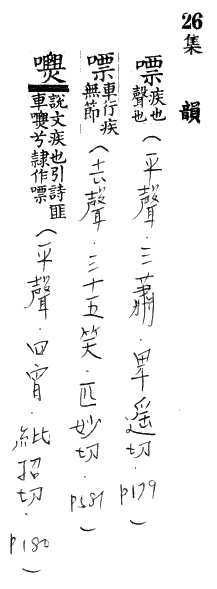 26
集韻
嘌疾也聲也(平聲.三蕭.卑遥切.p179)
嘌車行疾無節(去聲.三十五笑.匹妙切.p581)
嘌說文疾也引詩匪車嘌兮隷作嘌(平聲.四宵.紕招切.p180)